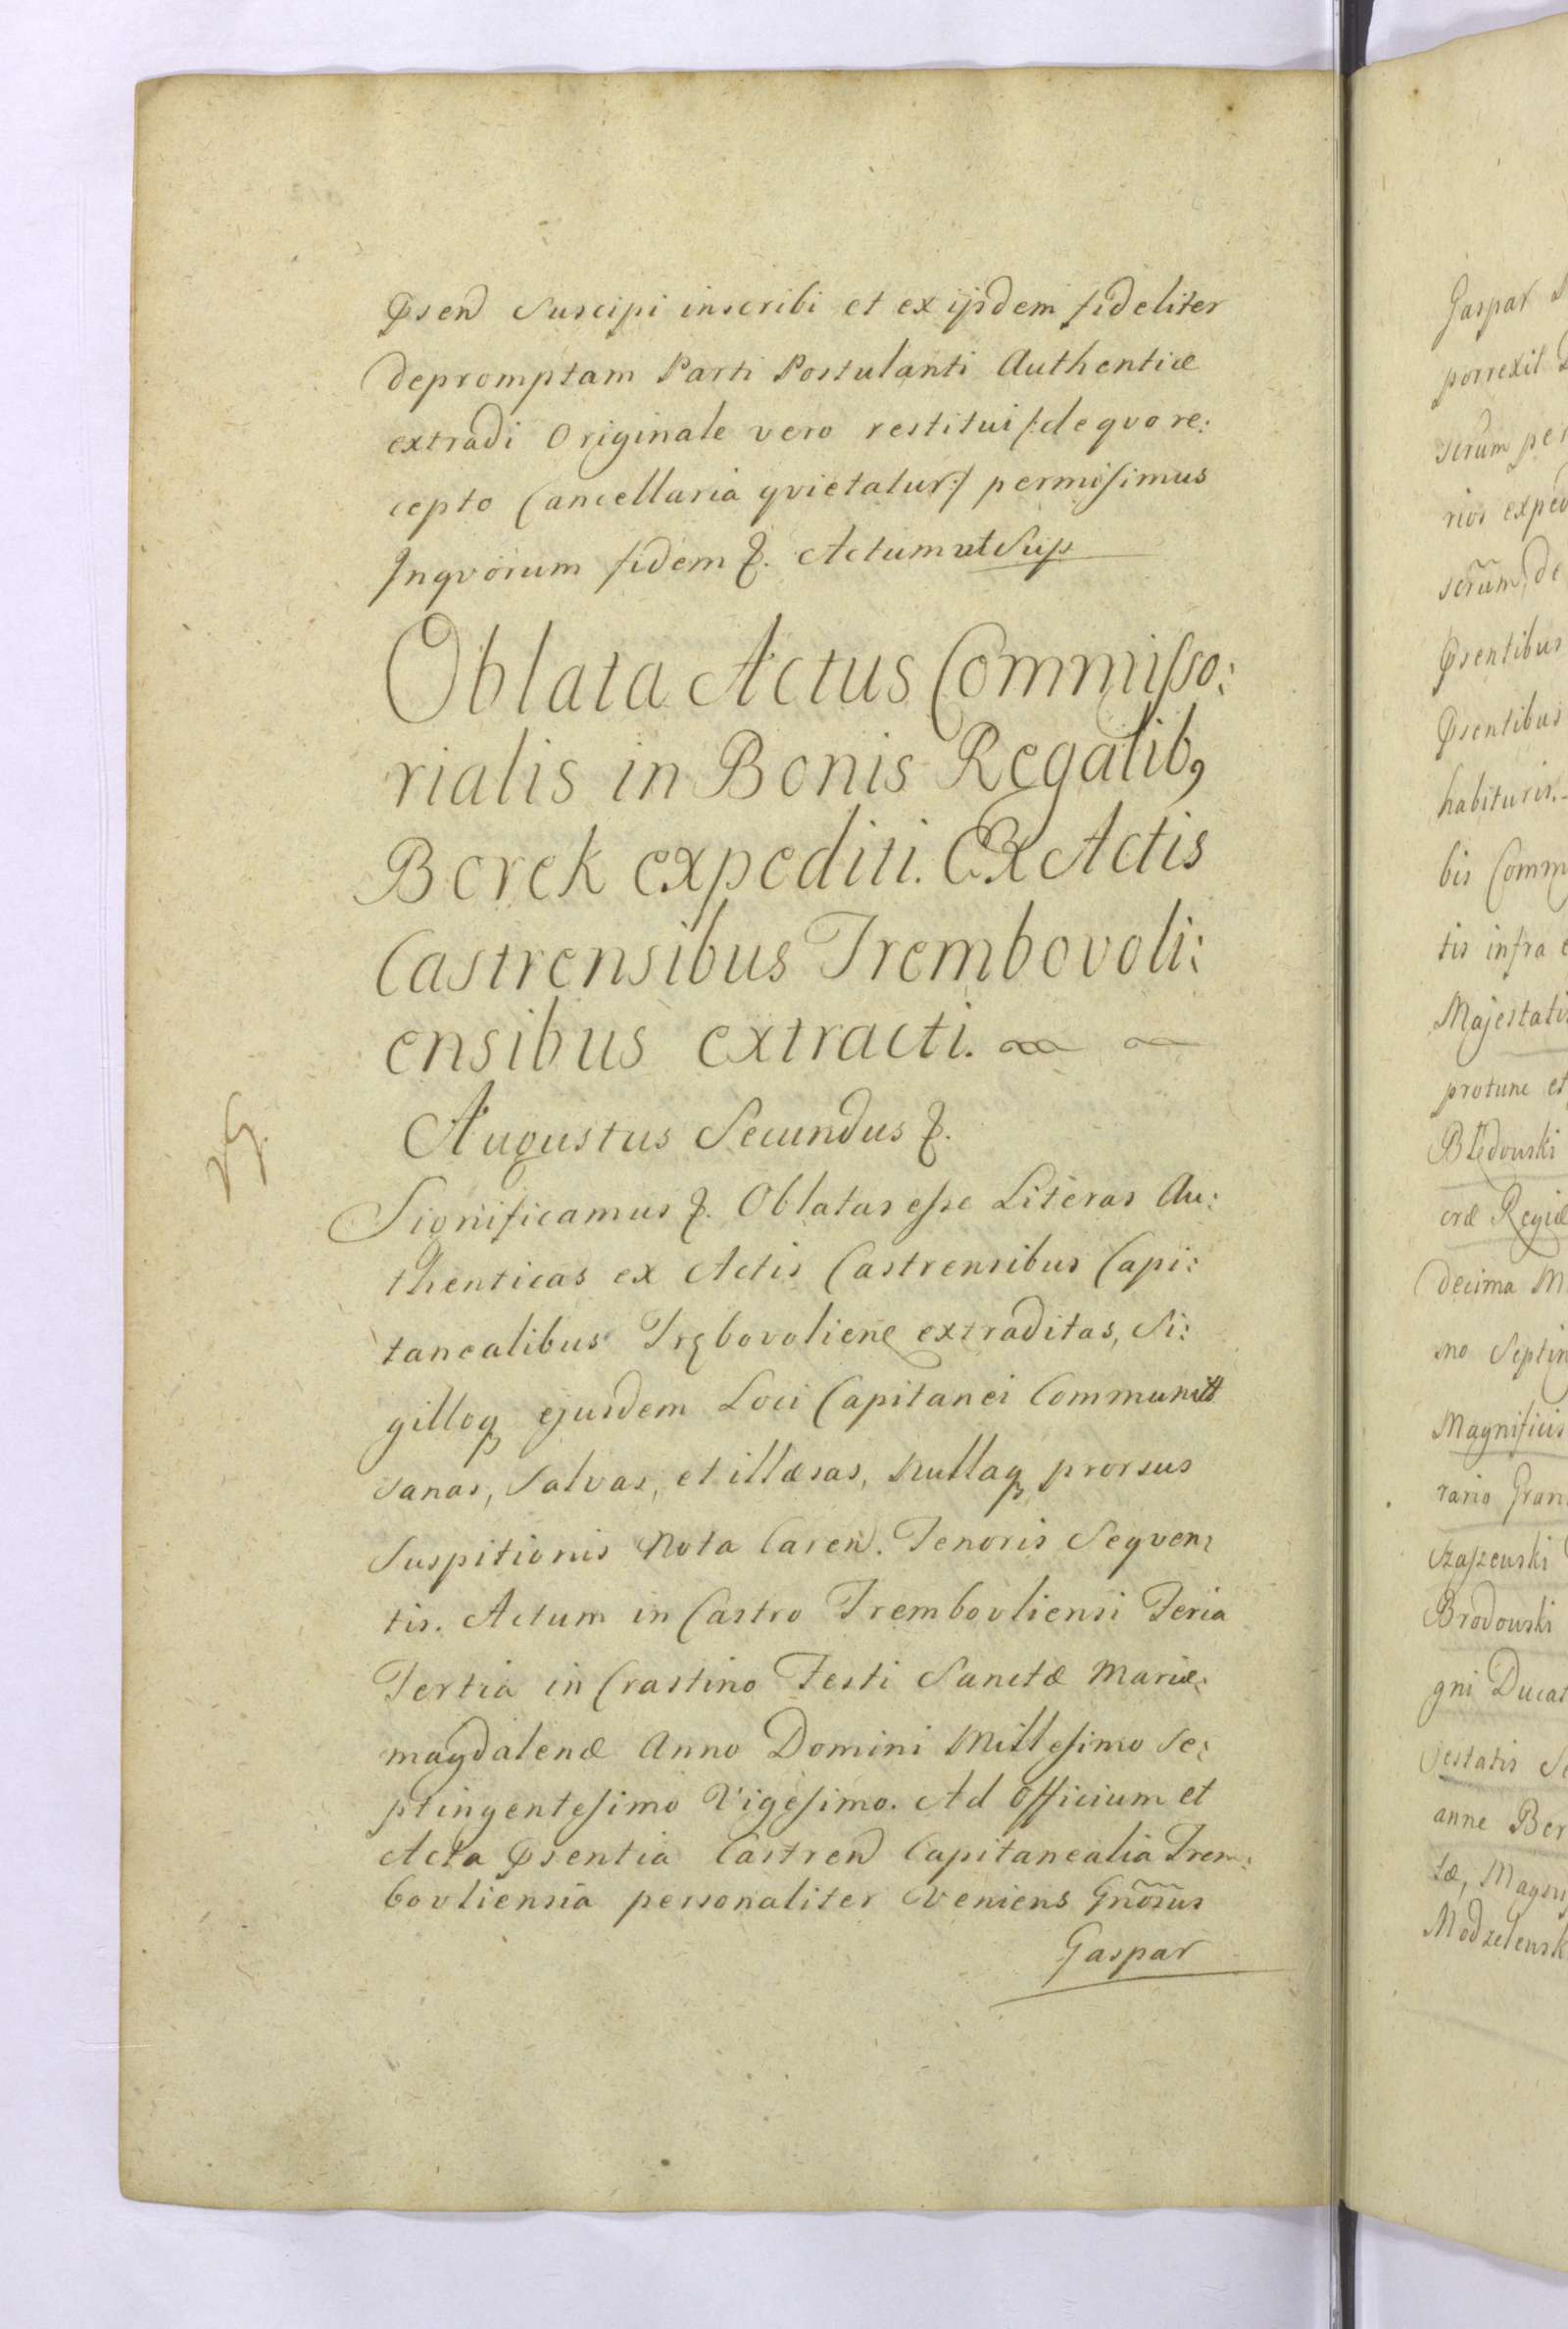 Psen suscipi inscribi et ex ijsdem fideliter
depromptam Parti Postulanti Authenticæ
extradi Originale vero restitui /:de qvo re:
cepto Cancellaria qvietatur:/ permisimus
Inqvorum fidem &. Actum ut Sup
Oblata Actus Commisso:
rialis in Bonis Regalib,
Berek expediti. Ex Actis
Castrensibus Trembovoli:
ensibus extracti.
Augustus Secundus &.
Significamus &. Oblatas esse Literas Au:
thenticas ex Actis Castrensibus Capi:
tanealibus Trębovoliene extraditas, Si:
gilloq ejusdem Loci Capitanei Communitt
sanas, salvas, et illæsas, Nullaq prorsus
Suspitionis Nota Caren. Tenoris Seqven:
tis. Actum in Castro Trembovliensi Feria
Tertia in Crastino Festi Sanctæ Mariæ:
magdalenæ Anno Domini Millesimo Se:
ptingentesimo Vigesimo. Ad Officium et
Acta Psentia Castren Capitanealia Trem:
bovliensia personaliter Veniens Gnosus
Gaspar
Gaspar
porrexit
scrum per
rios exped
scrum, de
Psentibus
Psentibus
habituris.
bis Comm
tis infra
Majestatis
protunc et
Błędowski
eræ Regiæ
decima M
mo Septin
Magnificis
rario Gran
Szaszewski
Brodowski
gni Ducat
jestatis Se
anne Ber
tæ,
Modzelewsk